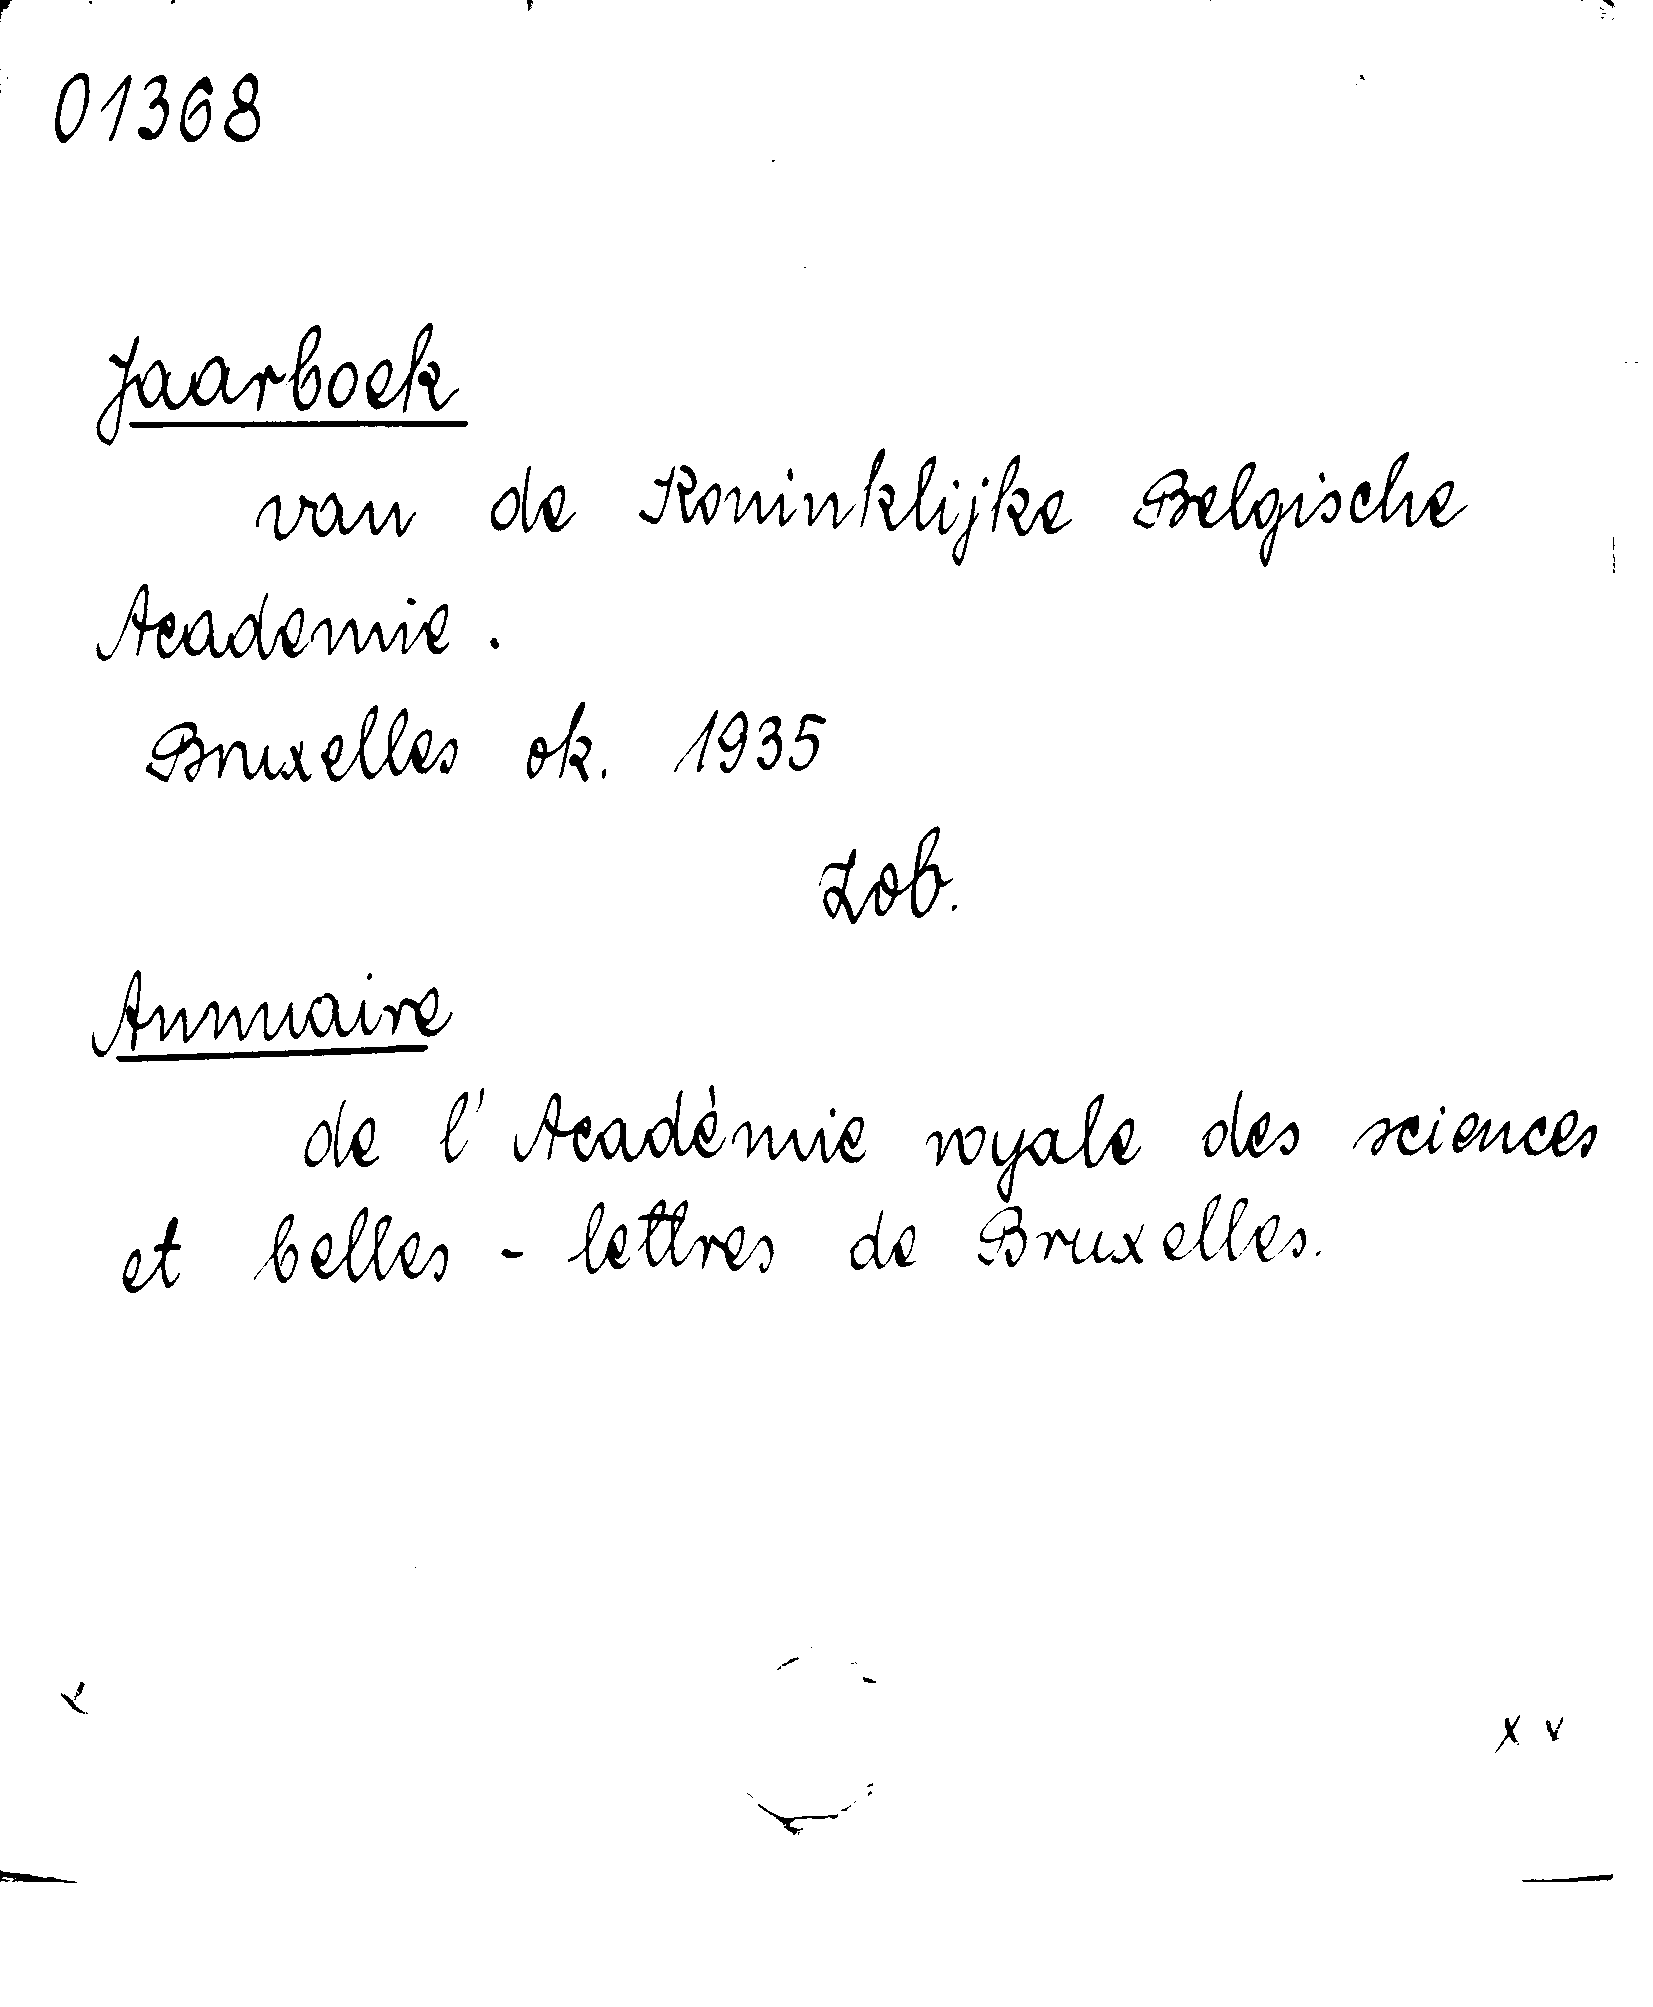 01368
Jaarboek
van de Koninklijke Belgische
Academie.
Bruxelles ok. 1935
Zob.
Annuaire
de l'Académie royale des sciences
et belles-lettres de Bruxelles.
x v